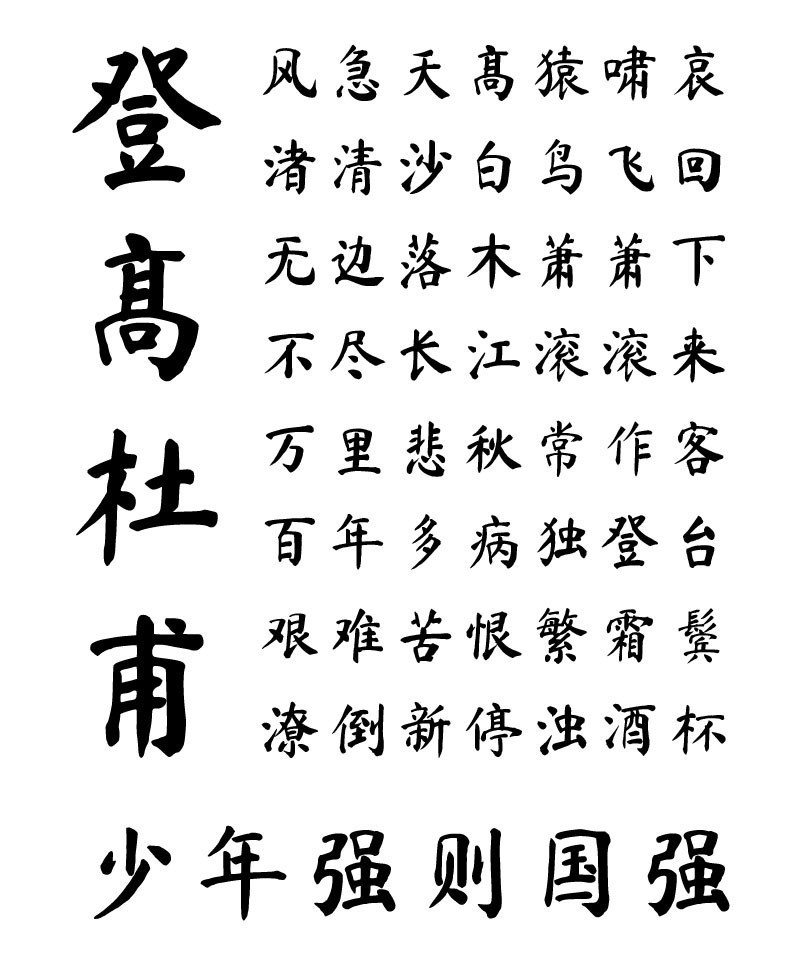 登高杜甫
风急天髙猿啸哀
渚清沙白鸟飞回
无边落木萧萧下
不尽长江滚滚来
万里悲秋常作客
百年多病独登台
艰难苦恨繁霜鬓
潦倒新停浊酒杯
少年强则国强